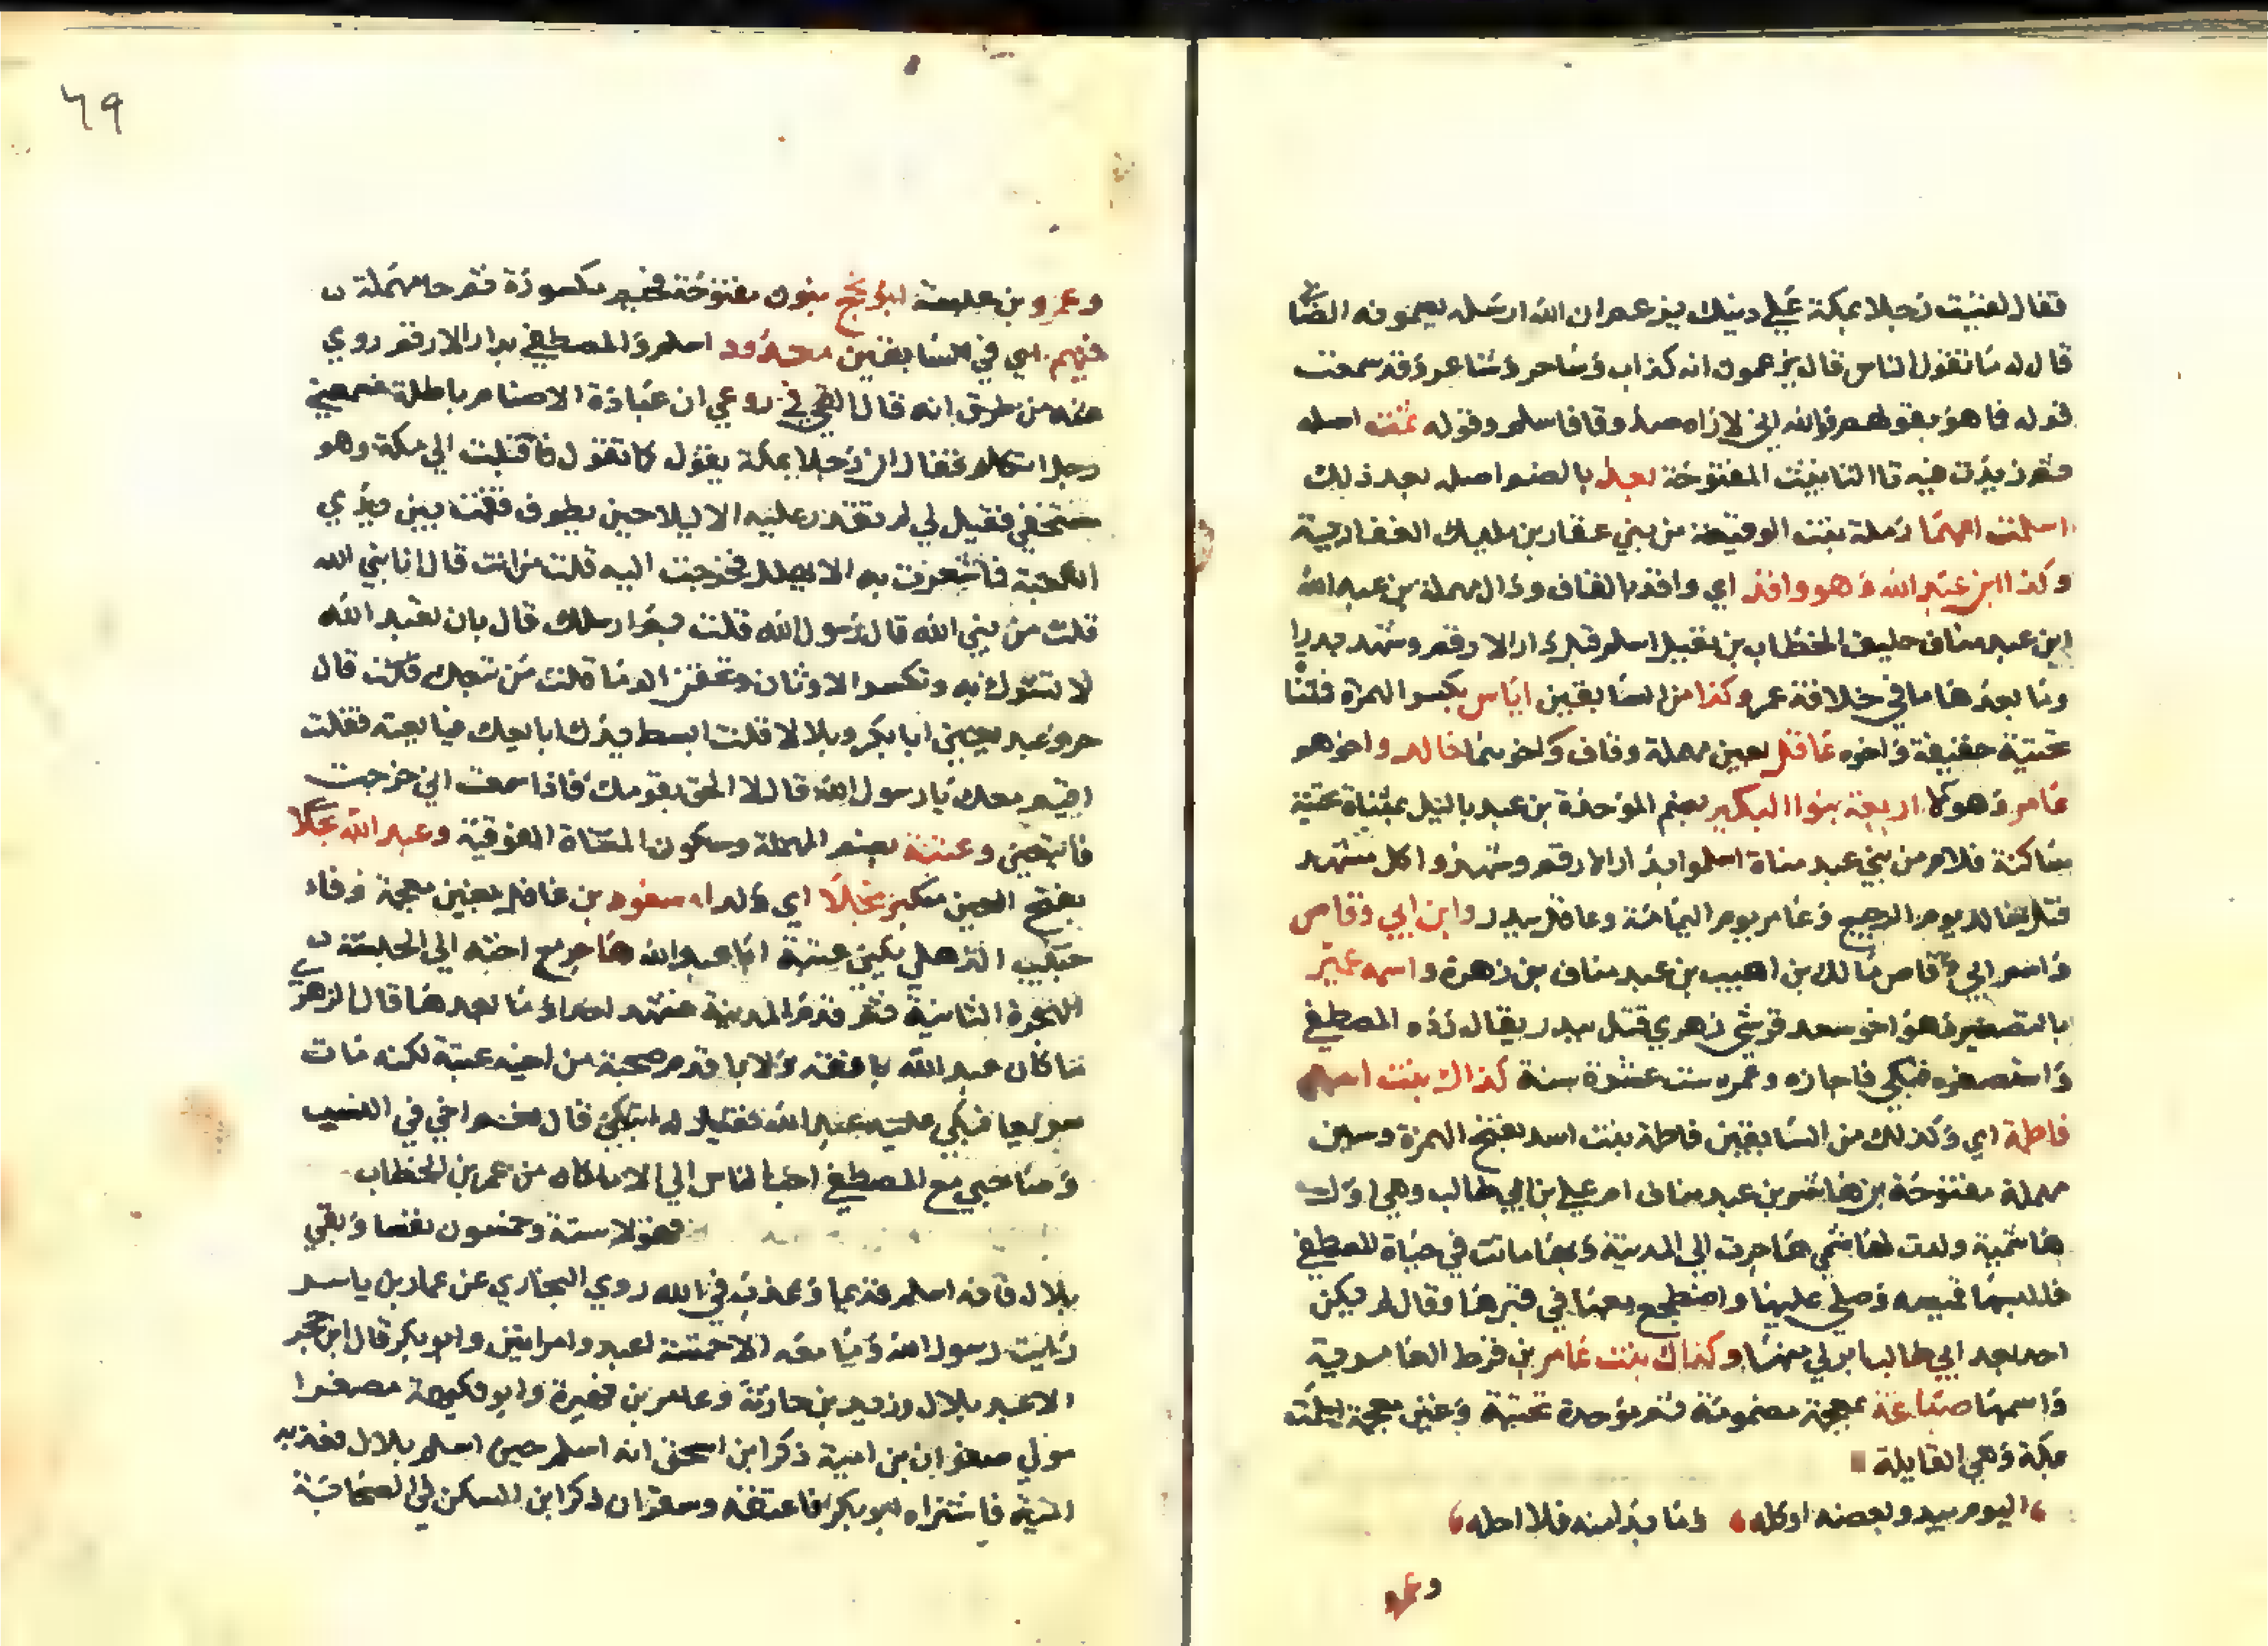 فقال لقيت رجلا بمكة على دينك يزعم ان الله ارسله يسمونه الصابي
قال له ما تقول الناس قال يزعمون انه كذاب وساحر وشاعر وقد سمعت
قوله فما هو بقولهم فوالله اني لاراه صادقا فاسلم وقوله ثمت اصله
ثم زيدت فيه تا التانيث المفتوحة بعد بالضم اصله بعد ذلك
اسلمت امهما رملة بنت الوقيعة من بني غفار بن مليك الغفارية
وكذا ابن عبد الله وهو واقد اي واقد بالقاف ودال مهملة بن عبد الله
ابن عبد مناف حليف الخطاب بن نفيل اسلم قبل دار الارقم وشهد بدرا
وما بعدها مات في خلافة عمر وكذا من السابقين اياس بكسر الهمزة فمثناة
تحتية خفيفة واخوه عاقل بعين مهملة وقاف واخوهما خالد واخوهم
عامر وهولا اربعة بنوا البكير بضم الموحدة بن عبد ياليل بمثناة تحتية
ساكنة فلام من بني عبد مناة اسلموا بدار الارقم وشهدوا كل مشهد
قتل خالد يوم الرجيع وعامر يوم اليمامة وعاقل ببدر وابن ابي وقاص
واسم ابي وقاص مالك بن اهيب بن عبد مناف بن زهرة واسمه عمير
بالتصغير وهو اخو سعد قرشي زهري قتل ببدر يقال رده المصطفى
واستصغره فبكى فاجازه وعمره ست عشرة سنة كذاك بنت اسد
فاطمة اي وكذلك من السابقين فاطمة بنت اسد بفتح الهمزة وسين
مهملة مفتوحة بن هاشم بن عبد مناف ام علي بن ابي طالب وهي اول
هاشمية ولدت لهاشمي هاجرت الى المدينة وبها ماتت في حياة المصطفى
فالبسها قميصه وصلى عليها واضطجع معها في قبرها وقال لم يكن
احد بعد ابي طالب ابر لي منها وكذاك بنت عامر بن قرط العامرية
واسمها ضباعة بمعجمة مضمومة ثم موحدة تحتية وعين معجمة اسلمت
بمكة وهي القايلة
اليوم يبدو بعضه او كله وما بدا منه فلا احله
وعمرو
٦٩
وعمرو بن عبسة ابو نجيح بنون مفتوحة فجيم مكسورة ثم حا مهملة
فيهم اي في السابقين معدود اسلم والمصطفى بدار الارقم روي
عنه من طرق انه قال القي في روعي ان عبادة الاصنام باطلة فسمعني
رجل اتكلم فقال ان رجلا بمكة يقول كما تقول فاقبلت الى مكة وهو
مستخفي فقيل لي لم تقدر عليه الا ليلا حين يطوف فقمت بين يدي
الكعبة فما شعرت به الا يهلل فخرجت اليه قلت من انت قال انا نبي الله
قلت من نبي الله قال رسول الله قلت بم ارسلك قال بان تعبد الله
لا تشرك به وتكسر الاوثان وتحقن الدما قلت من تبعك قال
حر وعبد يعني ابا بكر وبلالا قلت ابسط يدك ابايعك فبايعته فقلت
اقيم معك يا رسول الله قال لا الحق بقومك فاذا سمعت اني خرجت
فاتبعني وعتبة بضم المهملة وسكون المثناة الفوقية وعبد الله نجلا
بفتح العين مكبر نجلا اي ولدا مسعود بن غافل بغين معجمة وفاء
حبيب الهذلي يكنى عتبة ابا عبد الله هاجر مع اخيه الى الحبشة
الهجرة الثانية ثم قدم المدينة فشهد احدا وما بعدها قال الزهري
ما كان عبد الله بافقه ولا باقدم صحبة من اخيه عتبة لكنه مات
سريعا فبكى عليه عبد الله فقيل له اتبكي قال نعم اخي في النسب
وصاحبي مع المصطفى احب الناس الي الا ما كان من عمر بن الخطاب
فهولا ستة وخمسون نفسا وبقي
بلال فانه اسلم قديما وعذب في الله روى البخاري عن عمار بن ياسر
رايت رسول الله وما معه الا خمسة اعبد وامراتين وابو بكر قال ابن حجر
الاعبد بلال وزيد بن حارثة وعامر بن فهيرة وابو فكيهة مصغرا
مولى صفوان بن امية ذكر ابن اسحق انه اسلم حين اسلم بلال فعذبه
امية فاشتراه ابو بكر فاعتقه وشقران ذكر ابن السكن في الصحابة